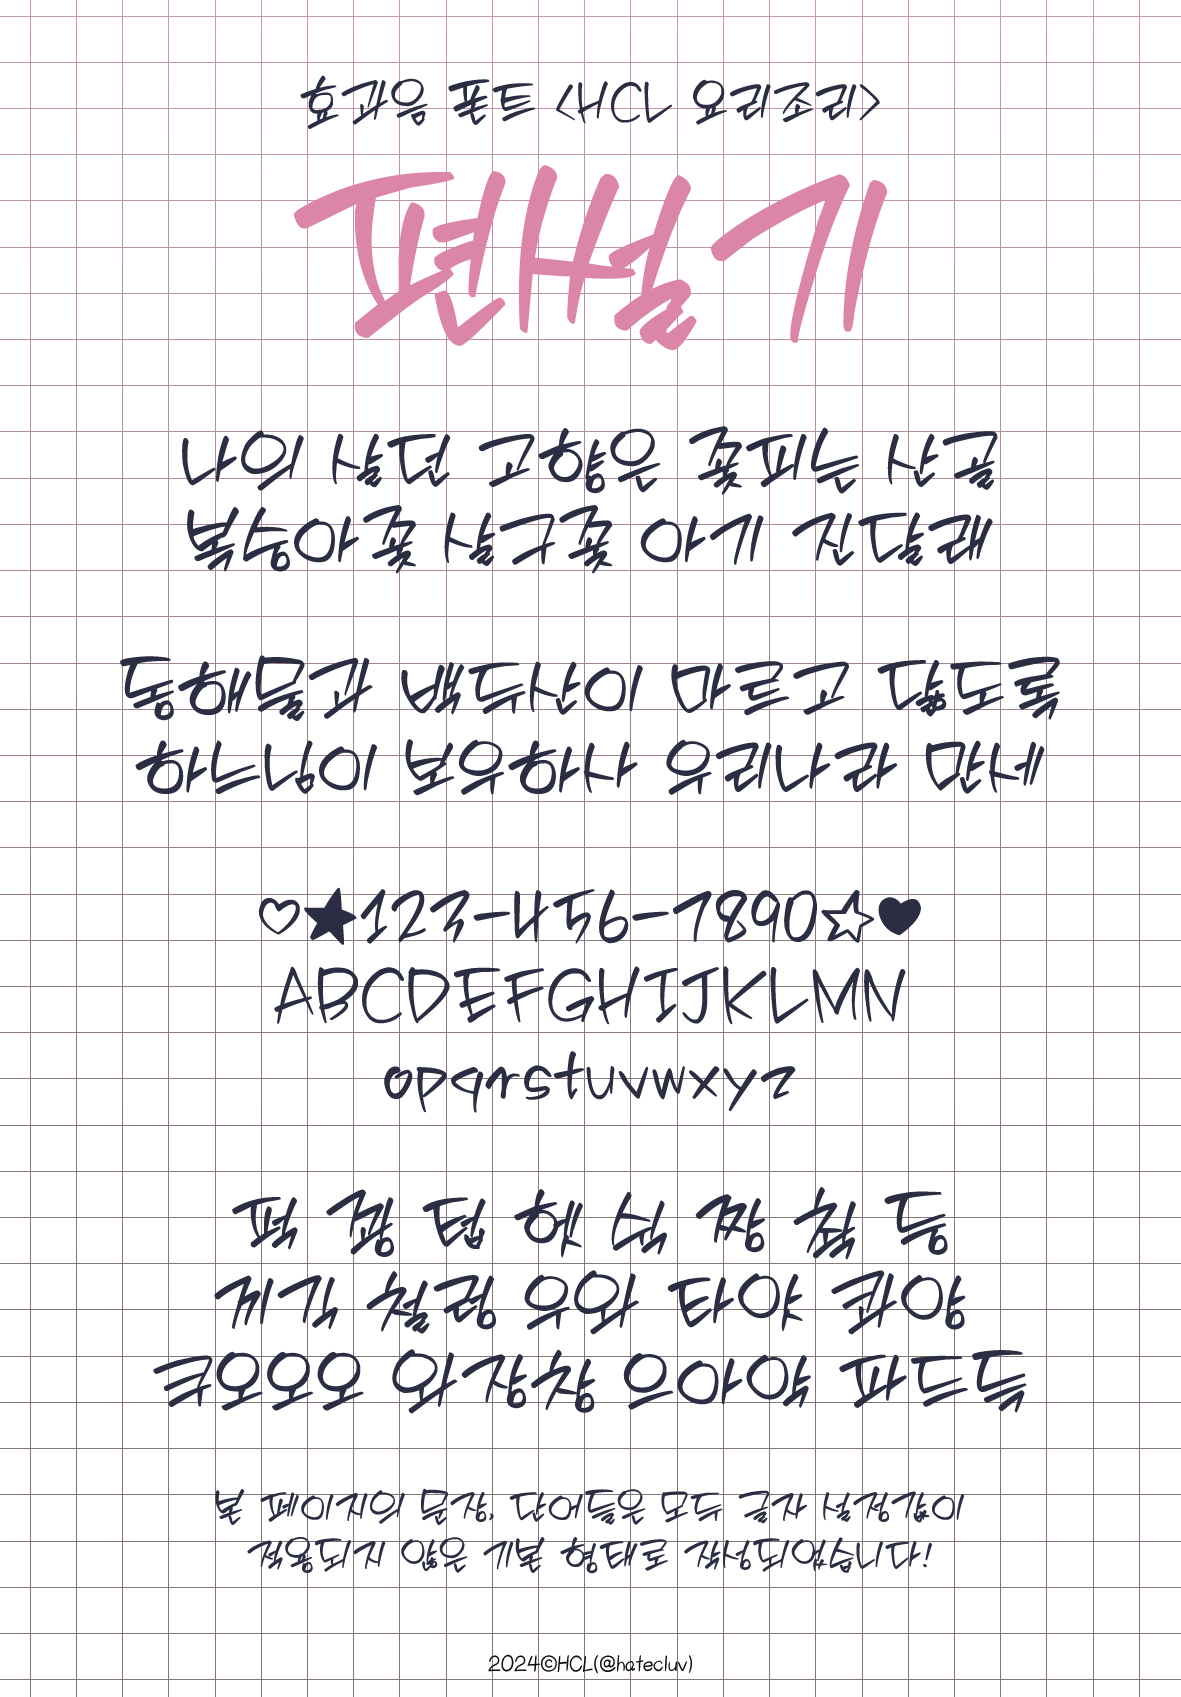 효과음 폰트 <HCL 요리조리>
편썰기
나의 살던 고향은 꽃피는 산골
복숭아꽃 살구꽃 아기 진달래
동해물과 백두산이 마르고 닳도록
하느님이 보우하사 우리나라 만세
♡★123-456-7890☆♥
ABCDEFGHIJKLMN
opqrstuvwxyz
퍽 쾅 텁 헷 쉭 짱 촥 등
끼긱 철렁 우와 타앗 콰앙
크오오오 와장창 으아악 파드득
본 페이지의 문장, 단어들은 모두 글자 설정값이
적용되지 않은 기본 형태로 작성되었습니다!
2024©HCL(@hatecluv)